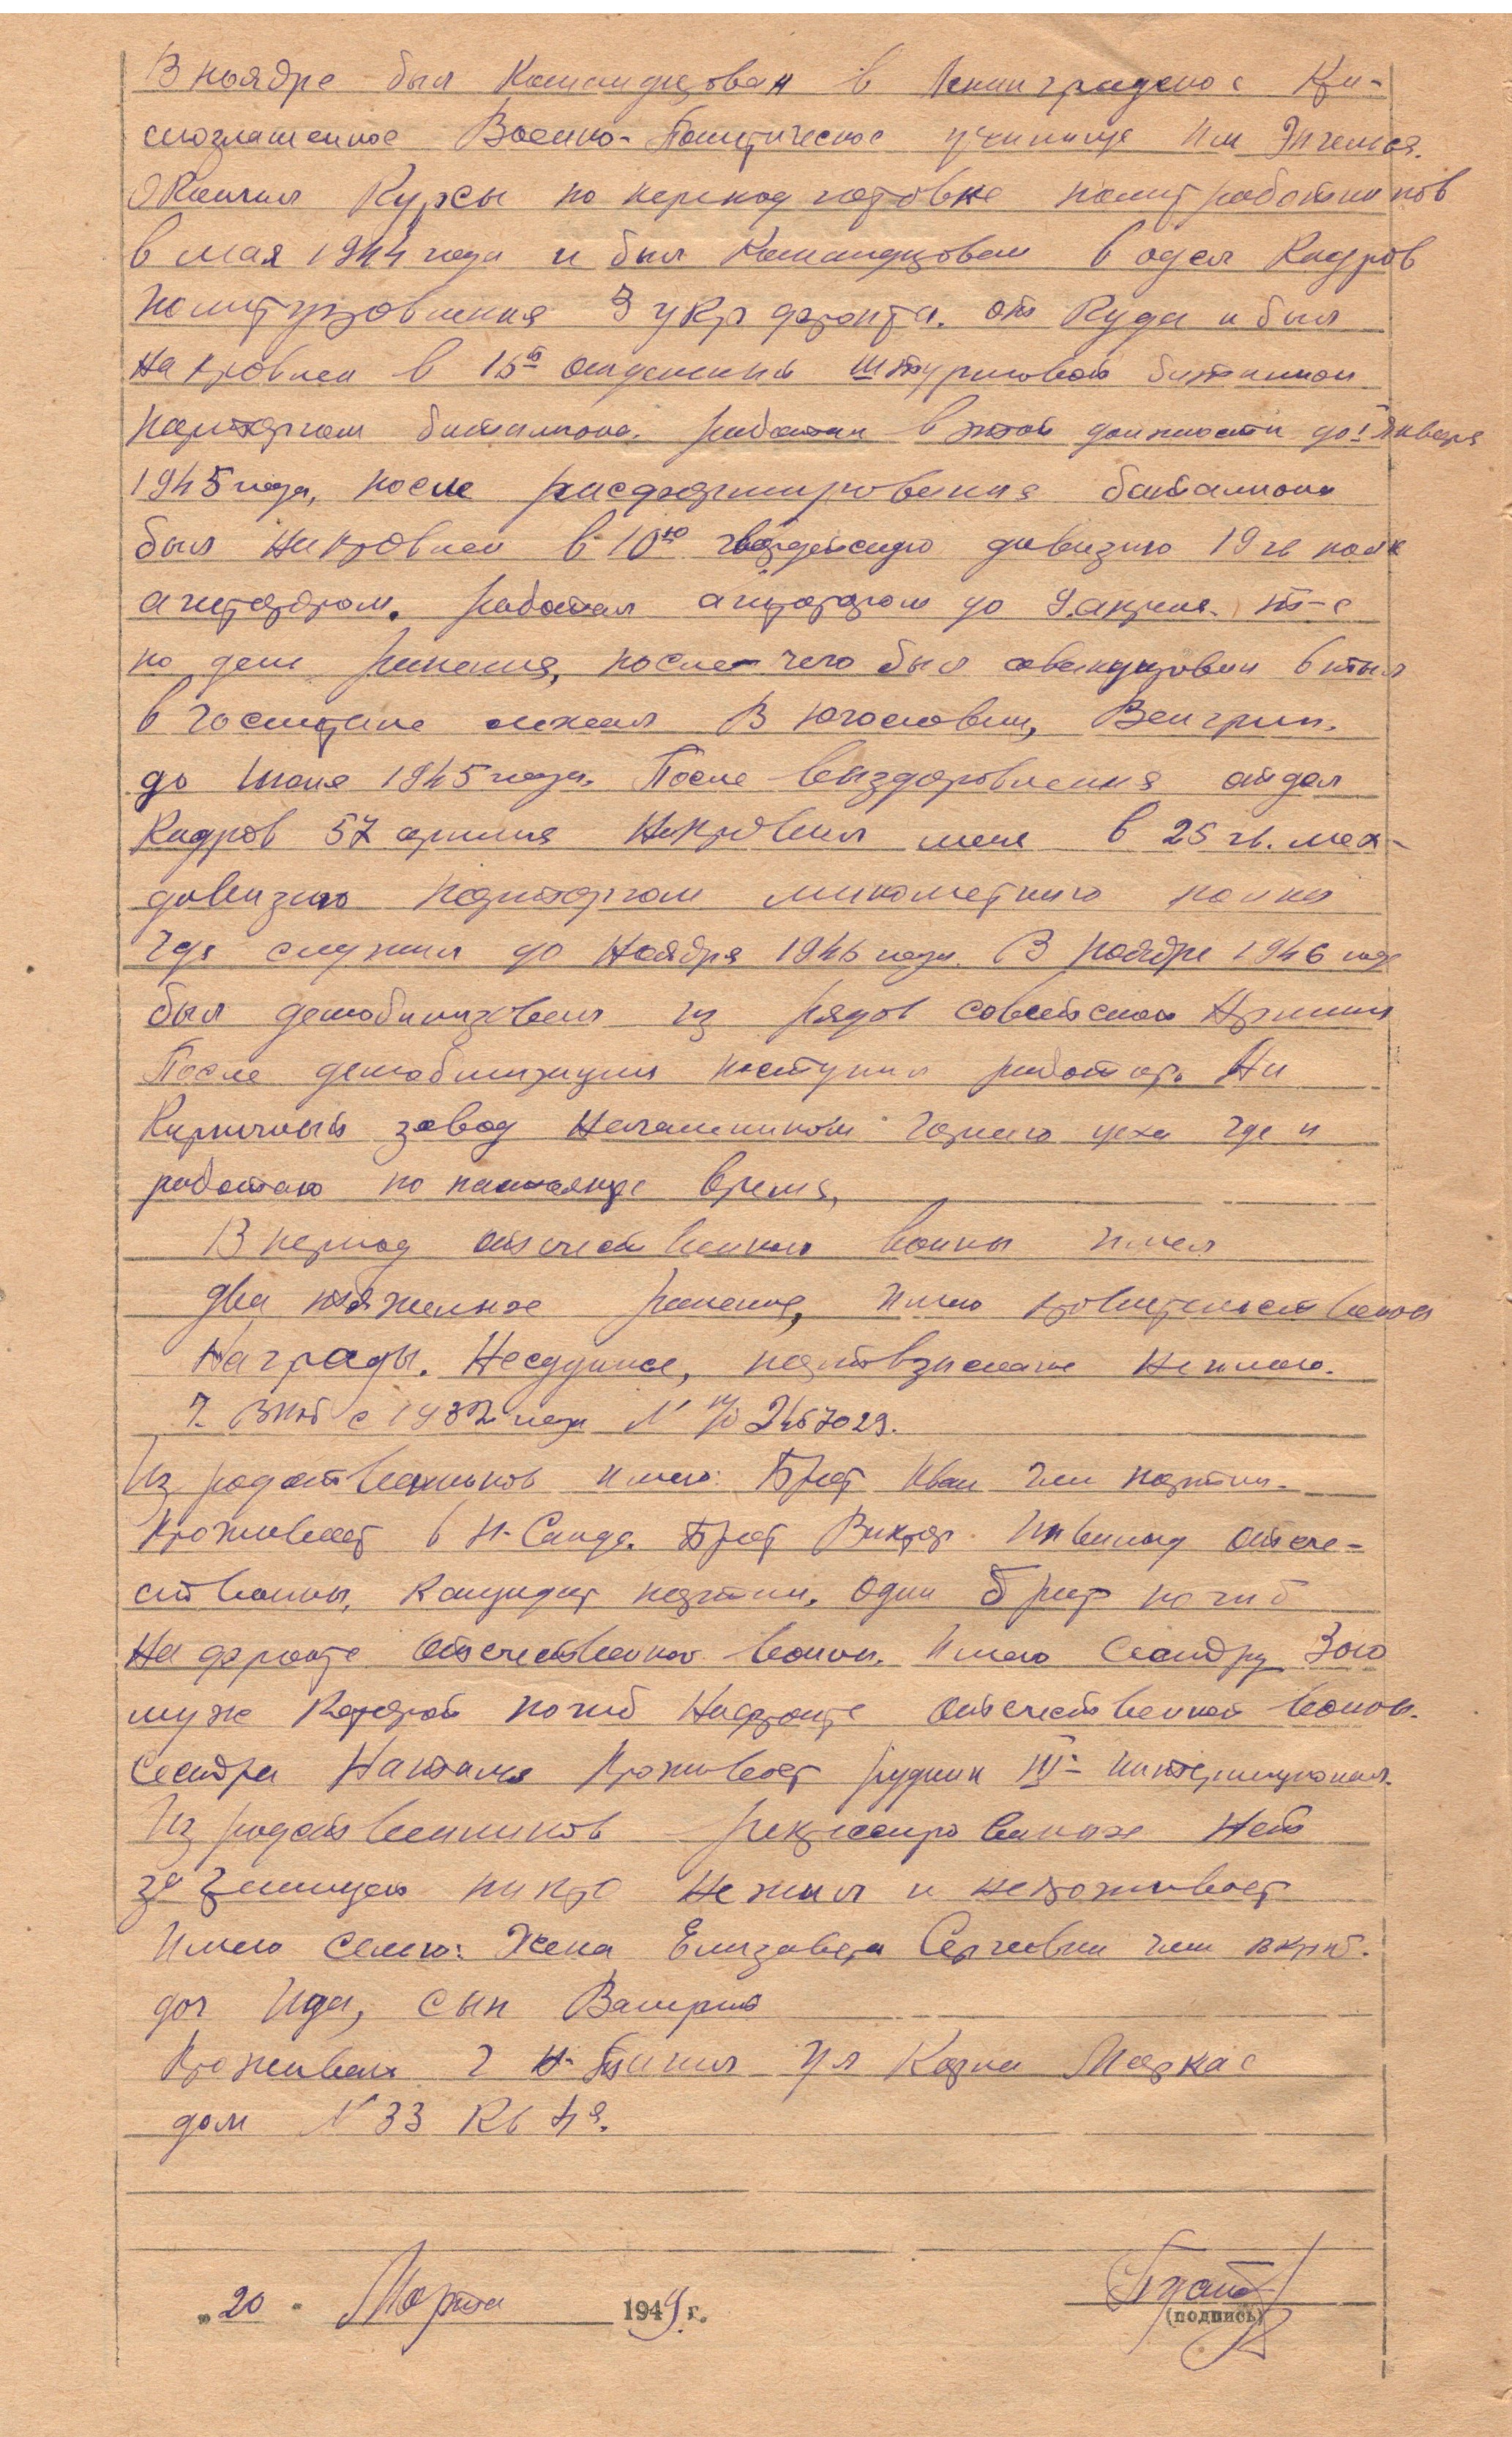 В ноябре был командирован в Ленинградское Кра-
снознаменное Военно-Политическое училище им Энгельса.
Окончил Курсы по переподготовке политработников
в мая 1944 года и был Командирован в одел Кадров
политуправления 3 укр фронта. от Куда и был
направлен в 15й отдельный штурмовой батальон
парторгом батальона. работал в этой должности до 1 января
1945 года, после расформирования батальона
был направлен в 10ю гвардейскую дивизию 19 гв полк
агитатором. работал агитатором до 9 апреля. т-е
по день ранения, после чего был эвакуирован в тыл
в госпитале лежал В Югославии, Венгрии.
до Июня 1945 года. После выздоровления отдел
Кадров 57 армии Направил меня в 25 гв. мех-
дивизию парторгом минометного полка
где служил до Ноября 1946 года. В Ноябре 1946 года
был демобилизован из рядов советской Армии
После демобилизации поступил работать На
Кирпичный завод Начальником Горного цеха где и
работаю по настояще время,
В период отечественной войны имел
два тяжелых ранения, имею правительственные
Награды. Несудился, партвзыскание неимею.
Ч. ВКПб с 1932 года № 2457029.
Из родственников имею: Брат Иван член партии.
Проживает в Н-Салде. Брат Виктор Инвалид отече-
ственны, Кандидат партии. один брат погиб
На фронте Отечественной войны. Имею Сестру Зою
муж Которой погиб Нафронте отечественной войны.
Сестра Наталья Проживает рудник III- интернационал.
Из родственников репрессированых Нет
за границей никто Нежил и непроживает
Имею Семю: Жена Елизавета Сергеевна член вкпб.
доч Ида, сын Валерий
Проживаю г Н-Тагил ул Карла Маркса
дом № 33 Кв
„20" Марта 1949 г.
(подпись)